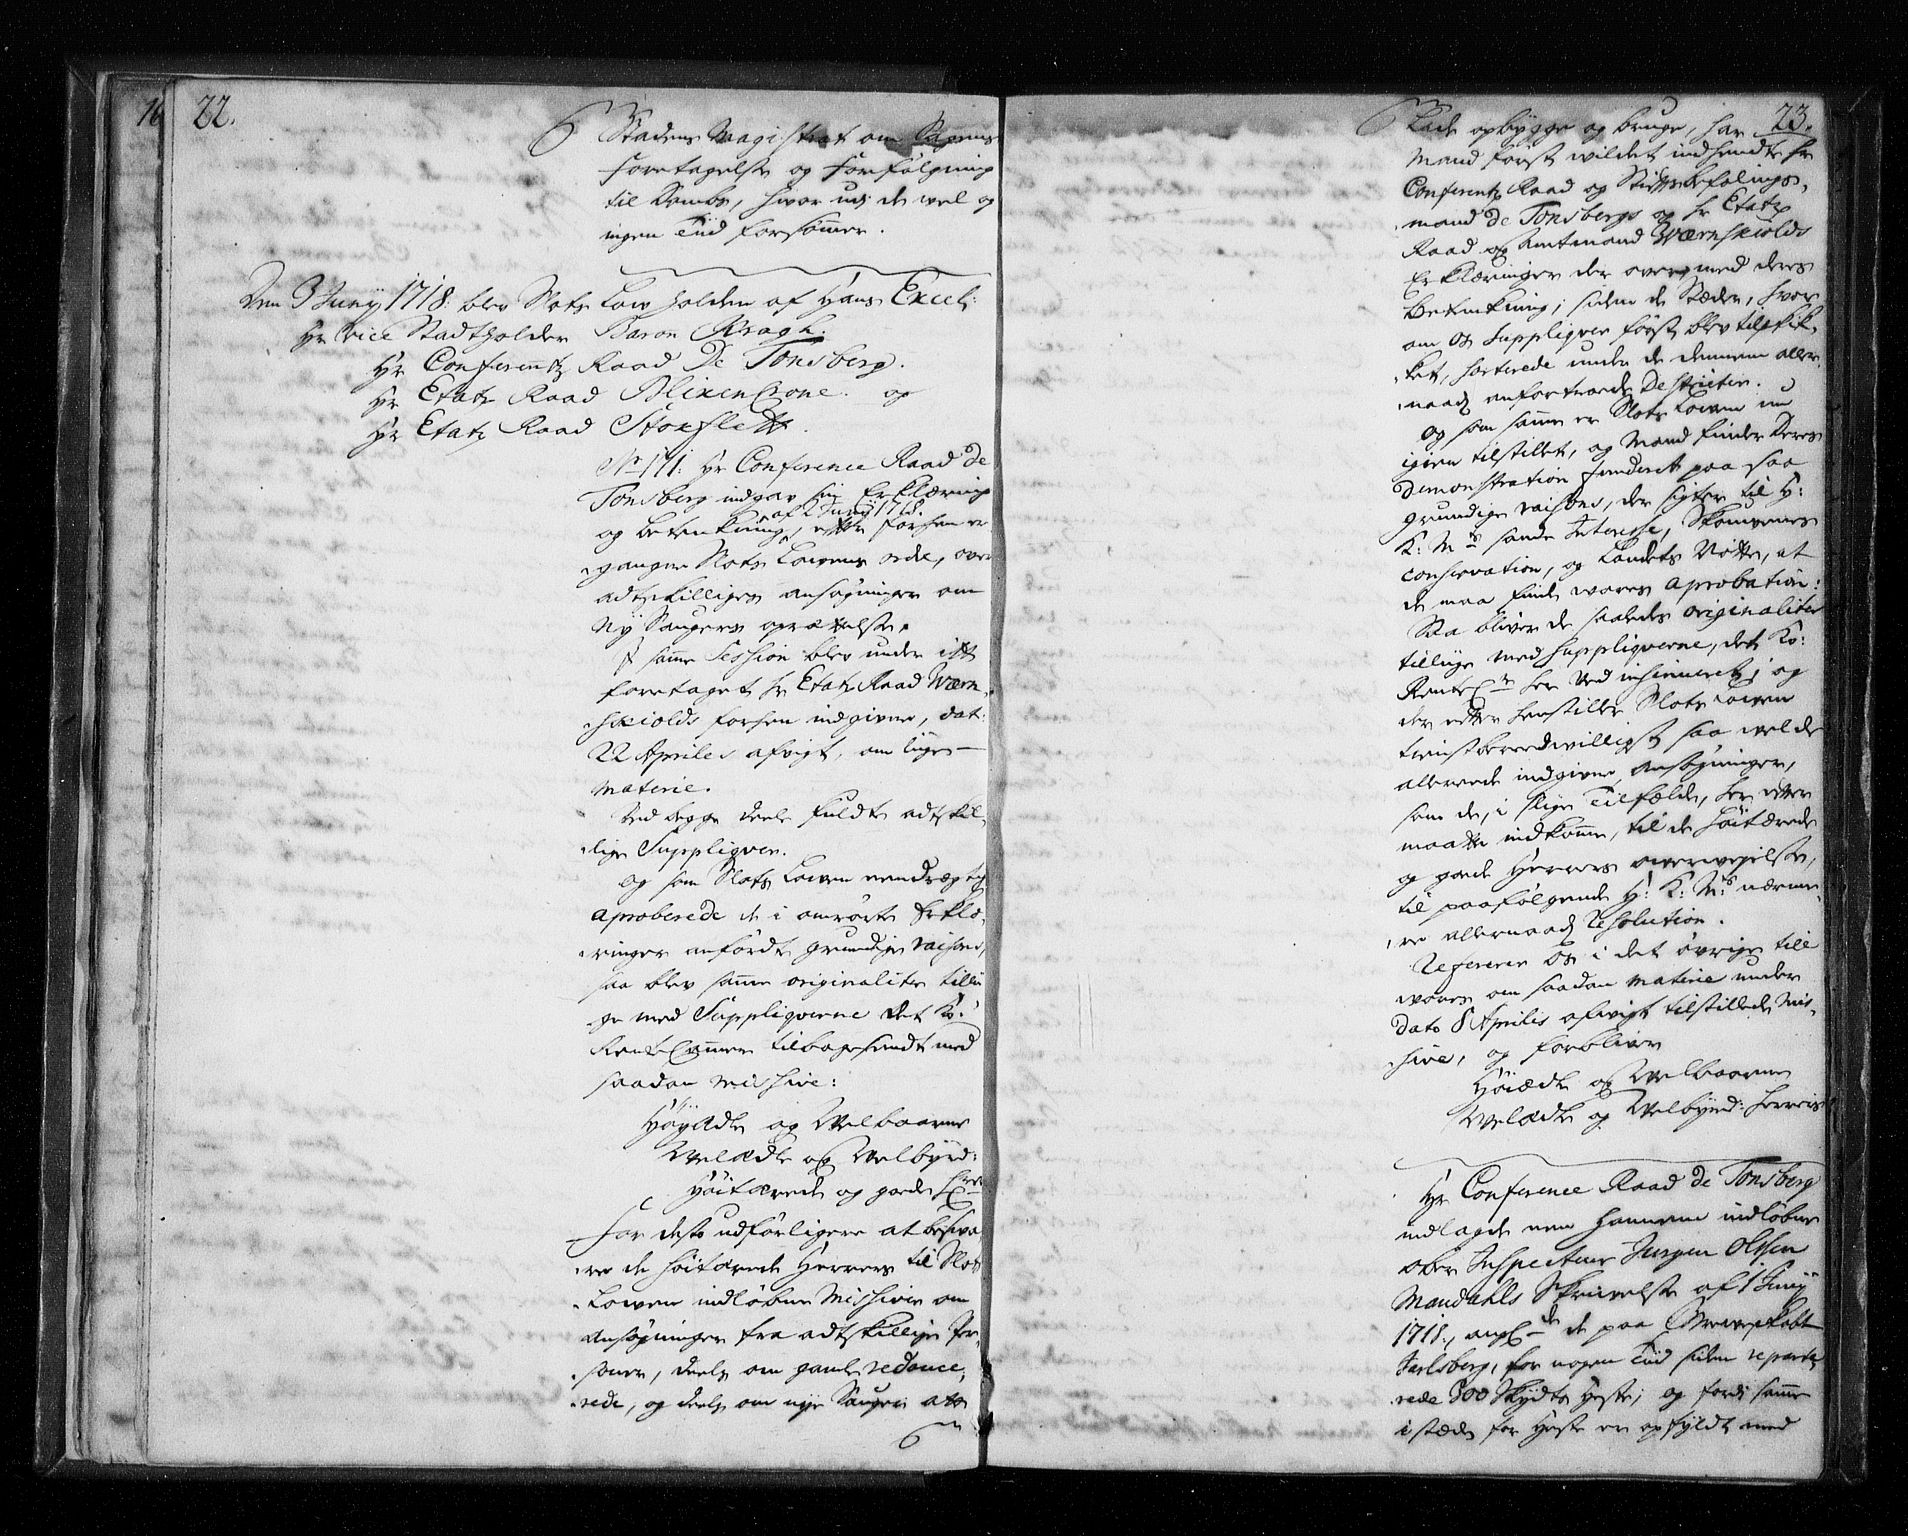 22.
Stadens Magistrat om Sagens
Foretagelse og Forfølgning
til Dombs, hvor udj de vel og
ingen Tiid forsømer.
Den 3 Juny 1718: blev Slots Low holden af Hans Excell:
Hr Vice Stadtholder Baron Kragh.
Hr Conferentz Raad De Tonsberg.
Hr Etatz Raad Blixencrone. og
Hr Etatz Raad Stoxflett.
No 171: Hr Conference Raad De
Tonsberg indgav sin Erklæring
af 2 Juny 1718.
og betenkning, efter forhen er
gangen Slots Lowens ordre, over
adtskillige ansøgninger om
Ny Saugers oprættelse.
J samme Session blev under itt
foretaget hr Etatz Raad Wærn-
skiolds forhen indgivne, dat:
22 Aprilis afvigt, om liige
materie.
Ved begge deele fuldte adtskil-
lige Suppliqver.
Og som Slots Lowen eendrægtig
aproberede de i omrørte Erklæ-
ringer anførdte grundige raisons,
saa blev samme originaliter tilli-
ge med Suppliqverne det Ko:
Rente Cammer tilbagesendt med
saadan missive:
HøyÆdle og Velbaarne
VelÆdle og Velbyrd:
Høitærede og goede Herrer
For desto udførligere at besva-
re de høitærede Herrers til Slots
Lowen indløbne Missiver om
ansøgninger fra adtskillige Per-
soner, deels om gamle redouce-
rede, og deels om nye Sauger att
23.
Lade opbygge og bruge, har
Mand først wildet indhendte hr
Conferentz Raad og Stiftsbefalings-
mand De Tonsbergs og hr Etatz
Raad og Amtmand Wærnskiolds
Erklæringer der over med deres
Betenkning; siden de Stæder, hvor
om Os Suppliqver først blev tilskik-
ket, sorterede under de dennem aller
naad anfortroede Destricter.
Og som samme er Slots Lowen nu
igien tilstillet, og Mand finder deres
Demonstration funderet paa saa
grundige raisons, der sigter til H:
K: Mts sande Interesse, Skowenes
conservation, og Landets Nøtte, at
de maa finde vores aprobation:
Saa bliver de saaledes originaliter
tillige med Suppliqverne, det Ko:
Rente Cr her ved insinueret; og
der efter henstiller Slots Lowen
tienstberedwilligst saa vel de
allerede indgivne ansøgninger,
som de, i slige Tilfælde, her efter
maatte indkomme, til de høitærede
og goede Herrers overvejelse,
til paafølgende H: K: Mts nærme-
re allernaad Resolution.
Referer Os i det øvrige till
vores om saadan materie under
Dato 8 Aprilis afvigt tilstillede mis-
sive, og forbliver
HøiÆdle og Velbaarne
VelÆdle og Velbyrd: Herrers
Hr Conference Raad De Tonsberg
indlagde een hannem indløben
ober Inspecteur Jurgen Olssen
Mandahls Skrivelse af 1 Juny
1718, angde de paa Grevskabt
Jarlsberg, for nogen Tiid siden reparte-
rede 300 Skydts Heste; og fordj samme
i stæde for Heste er opfyldt med